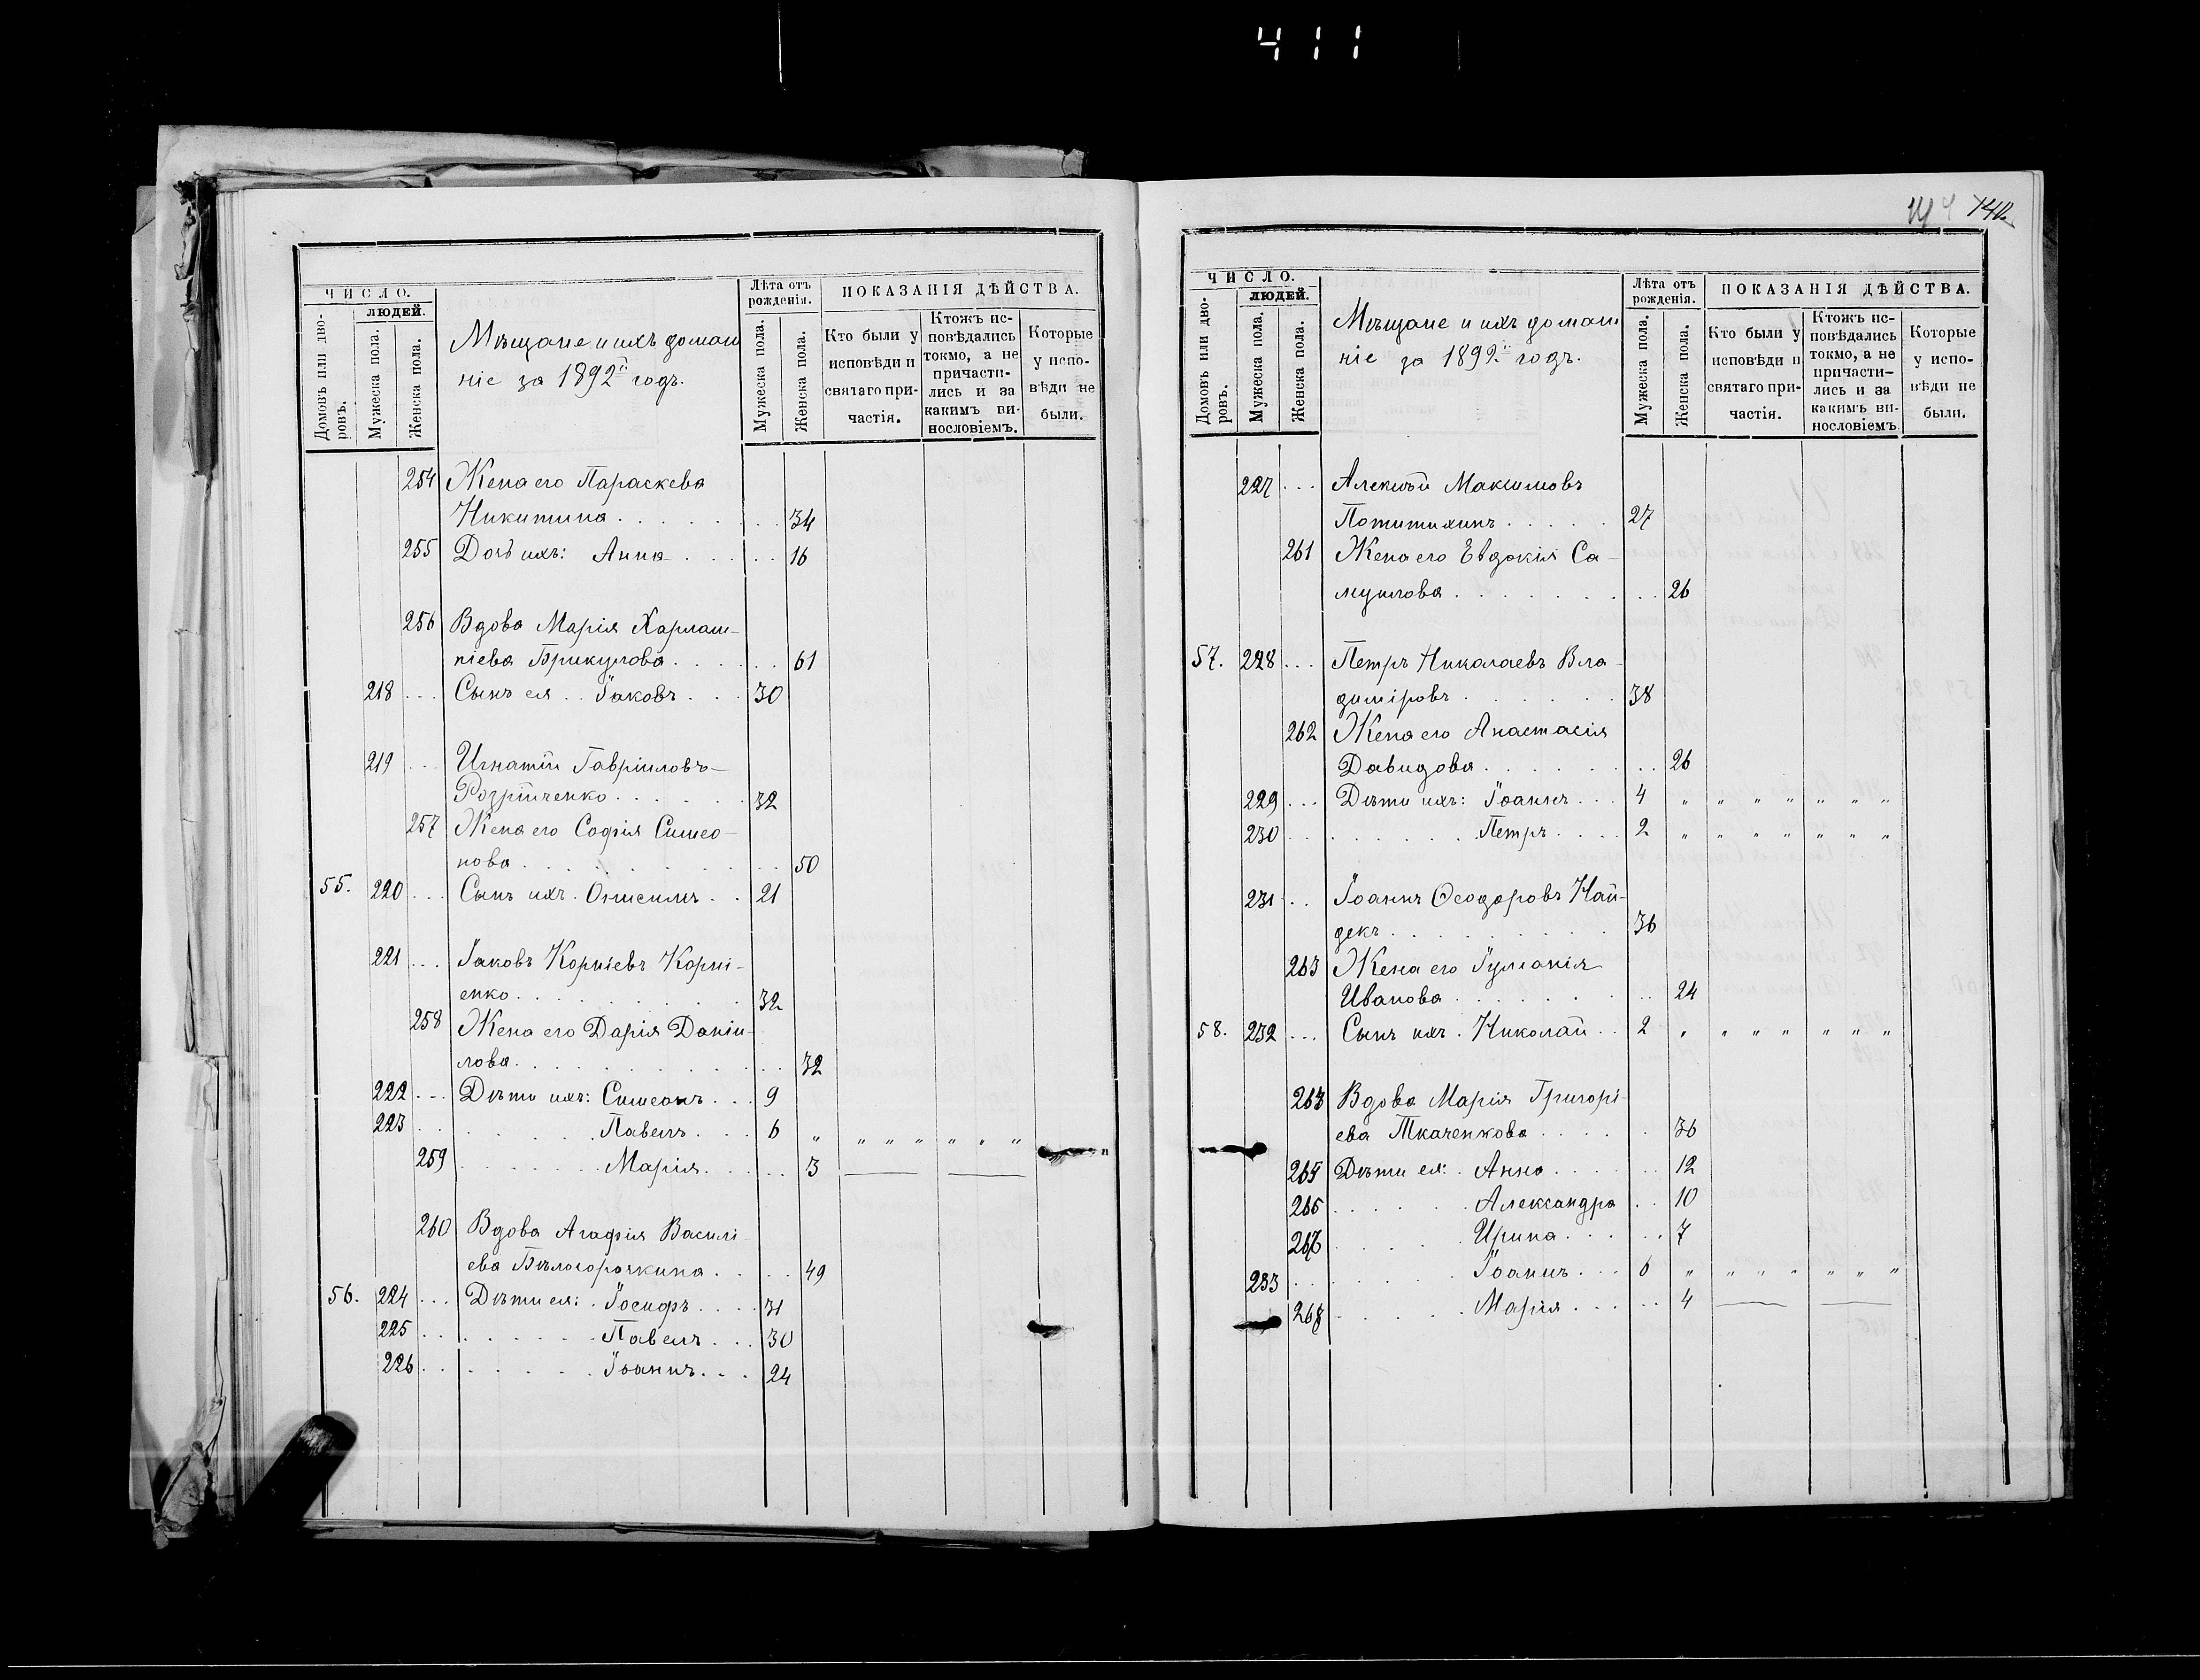 411
ЧИСЛО.
ЛЮДЕЙ.
Домовъ или дво-
ровъ.
Мужеска пола.
Женска пола.
Мѣщане и ихъ домаш
ніе за 1892й годъ.
Лѣта отъ
рожденія.
Мужеска пола.
Женска пола.
ПОКАЗАНІЯ ДѢЙСТВА.
Кто были у
исповѣди и
святаго при-
частія.
Ктожъ ис-
повѣдались
токмо, а не
причасти-
лись и за
какимъ ви-
нословіемъ.
Которые
у испо-
вѣди не
были.
254 Жена его Параскева
Никитина . . . . . . . . 34
255 Дочь ихъ: Анна . . . . . 16
256 Вдова Марія Харлам-
піева Брикулова . . . . . . 61
218 . . . Сынъ ея . . Іаковъ . . . 30
219 . . . Игнатій Гавріиловъ
Розрійченко . . . . . . 32
257 Жена его Софія Симео-
нова . . . . . . . . . 50
55. 220 . . . Сынъ ихъ . Онисимъ . . 21
221 . . . Іаковъ Корніевъ Корні-
енко . . . . . . . . 32
258 Жена его Дарія Даніи-
лова . . . . . . . . . . 32
222 . . . Дѣти ихъ: Симеонъ . . . 9
223 . . . . . . . . Павелъ . . . 6 „ „ „ „ „ „ „
259 . . . . . . . Марія . . . . . 3
260 Вдова Агафія Василі
ева Бѣлогорочкина . . . . 49
56. 224 . . . Дѣти ея: . Іосифъ . . . . 31
225 . . . . . . . . Павелъ . . . 30
226 . . . . . . . Іоаннъ . . . 24
140
ЧИСЛО.
ЛЮДЕЙ.
Домовъ или дво-
ровъ.
Мужеска пола.
Женска пола.
Мѣщане и ихъ домаш
ніе за 1892й годъ.
Лѣта отъ
рожденія.
Мужеска пола.
Женска пола.
ПОКАЗАНІЯ ДѢЙСТВА.
Кто были у
исповѣди и
святаго при-
частія.
Ктожъ ис-
повѣдались
токмо, а не
причасти-
лись и за
какимъ ви-
нословіемъ.
Которые
у испо-
вѣди не
были.
227 . . . Алексѣй Максимовъ
Потитихинъ . . . . . 27
261 Жена его Евдокія Са-
муилова . . . . . . . . . 26
57. 228 . . . Петръ Николаевъ Вла-
диміровъ . . . . . . 38
262 Жена его Анастасія
Давидова . . . . . . . . 26
229 . . . Дѣти ихъ: Іоаннъ . . . 4 „ „ „ „ „ „ „
230 . . . . . . . . Петръ . . . . 2 „ „ „ „ „ „ „
231 . . Іоаннъ Ѳеодоровъ Най-
декъ . . . . . . . . . 36
263 Жена его Іуліанія
Иванова . . . . . . . . 24
58. 232 . . . Сынъ ихъ . Николай . . 2 „ „ „ „ „ „ „
263 Вдова Марія Григорі-
ева Ткаченкова . . . . . 36
265 Дѣти ея: . Анна . . . . . . 12
266 . . . . . . Александра . . 10
267 . . . . . Ирина . . . . . 7
233 . . . . . . . . Іоаннъ . . . 6 „ „ „ „ „ „ „
268 . . . . . Марія . . . . . 4